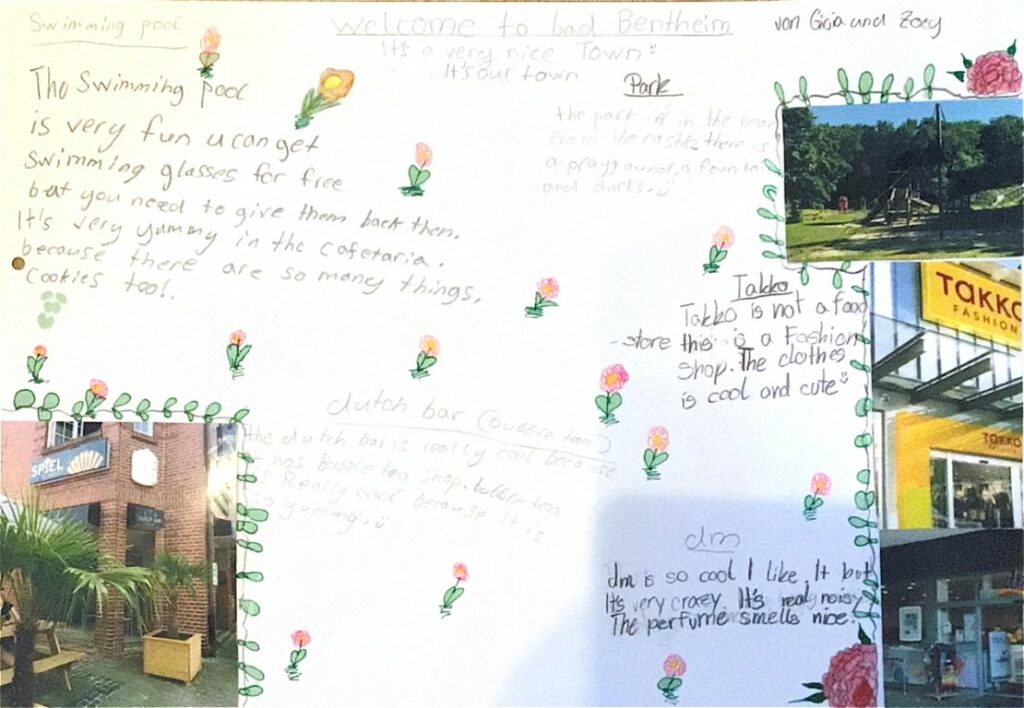 Swimming pool
The Swimming pool
is very fun u can get
swimming glasses for free
but you need to give them back then.
It's very yummy in the cafetaria.
because there are so many things,
Cookies too!.
welcome to bad Bentheim
It's a very nice Town
It's our town
von Gioia und Zoey
Park
the park is in the near
from the castle there is
a playground, a founta
and ducks.
Takko
Takko is not a food
store this is a Fashion
shop. The clothes
is cool and cute
TAKKO
FASHION
TAKKO
dutch bar (bubble tea)
the dutch bar is really cool because
it has Bubble tea shop. bubble tea
is Really cool because It is
so yummy.
SPIEL
dm
dm is so cool I like It but
It's very crazy. It's really noisy
The perfume smells nice.